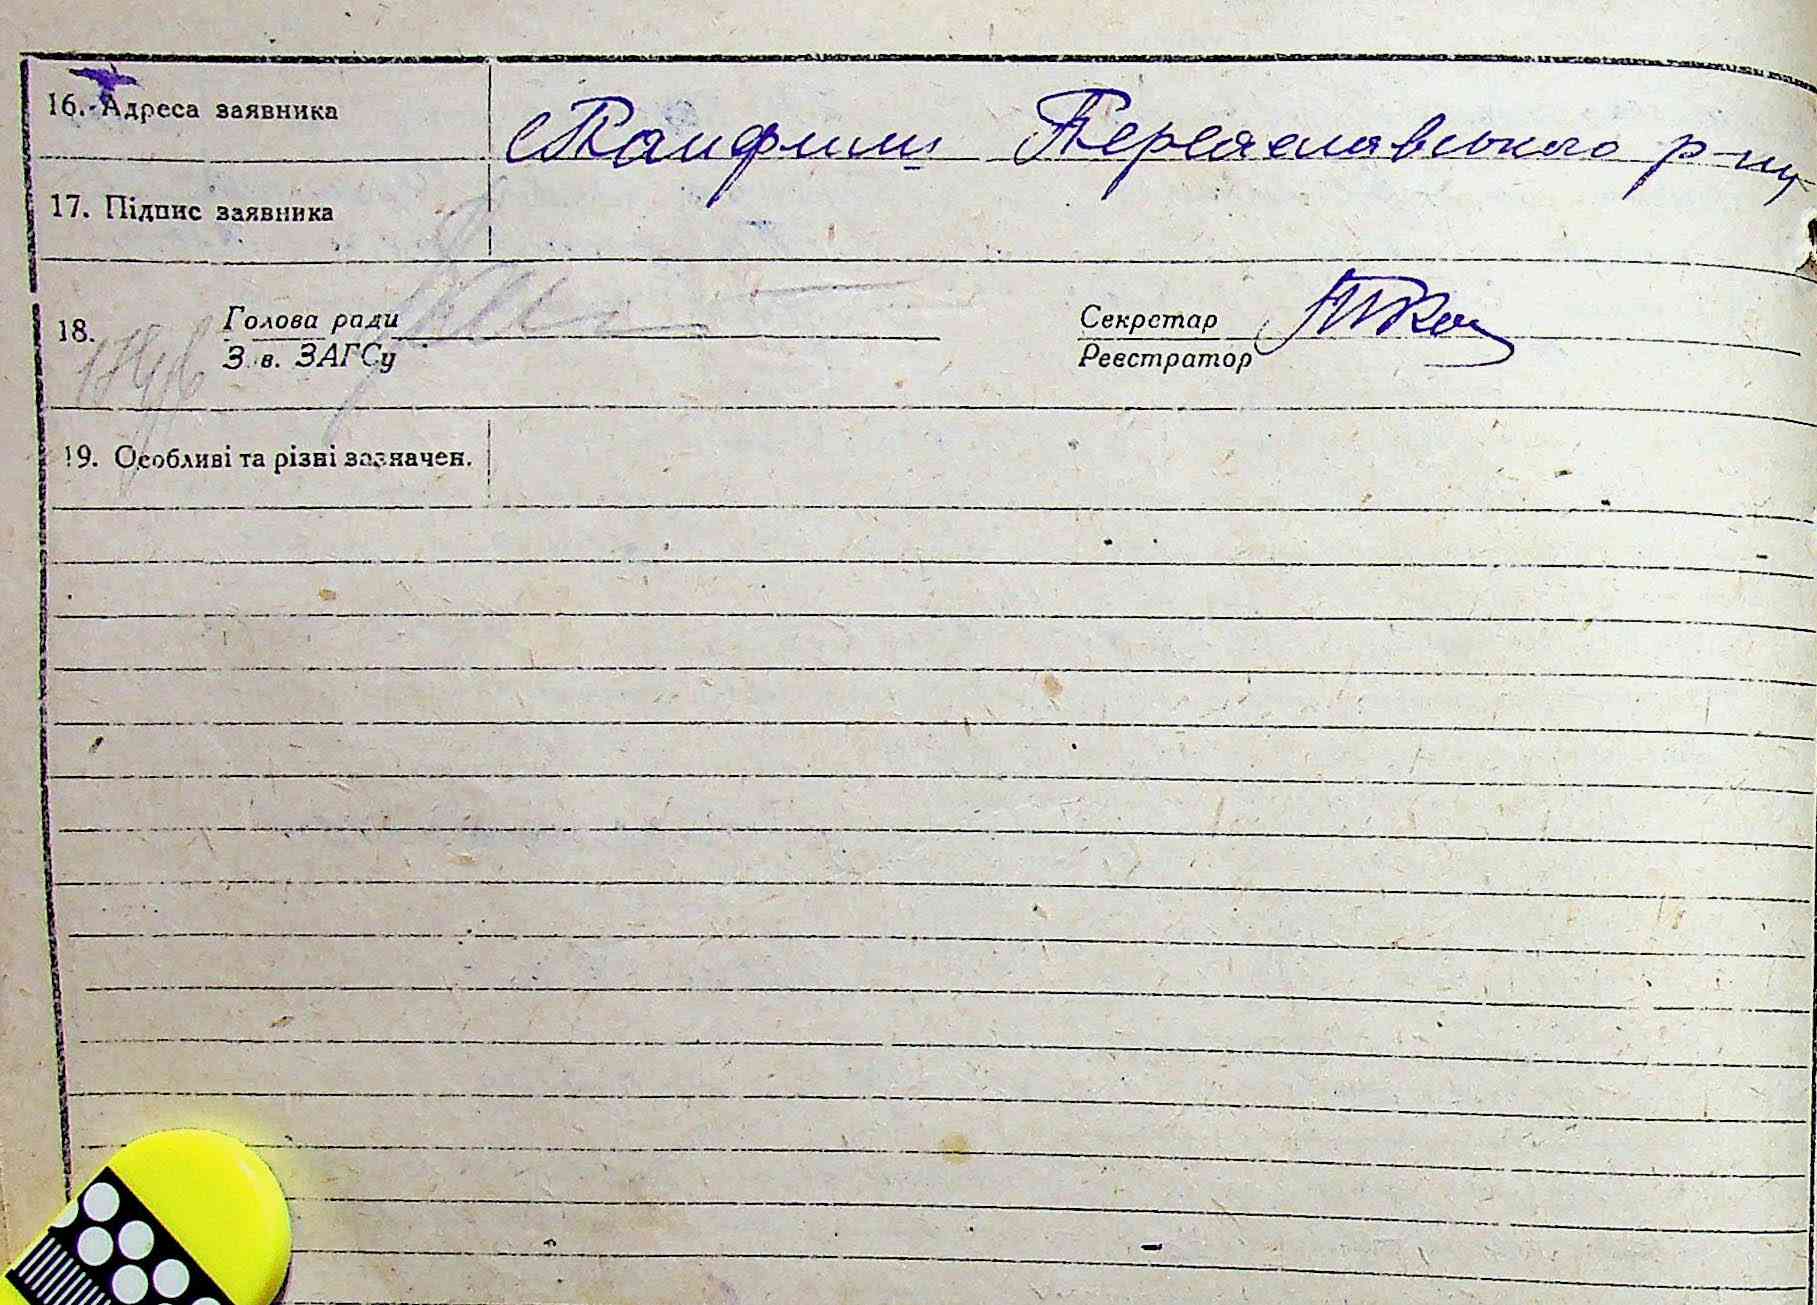 16. Адреса заявника с Панфили Переяславського р-ну
17. Підпис заявника
18. Голова ради Секретар
З.в. ЗАГСу Реєстратор
19. Особливі та різні зазначен.